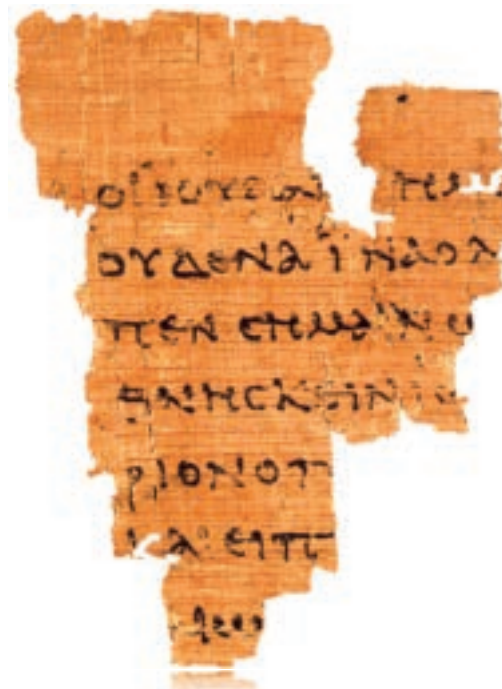 ΟΙΙΟΥΔΑΙ ΗΜΕ
ΟΥΔΕΝΑΪΝΑΟΛ
ΠΕΝCΗΜΑΙΝΩ
ΘΝΗCΚΕΙΝΙC
ΡΙΟΝΟΠ
ΚΑΙΕΙΠ
ΑΙΩ